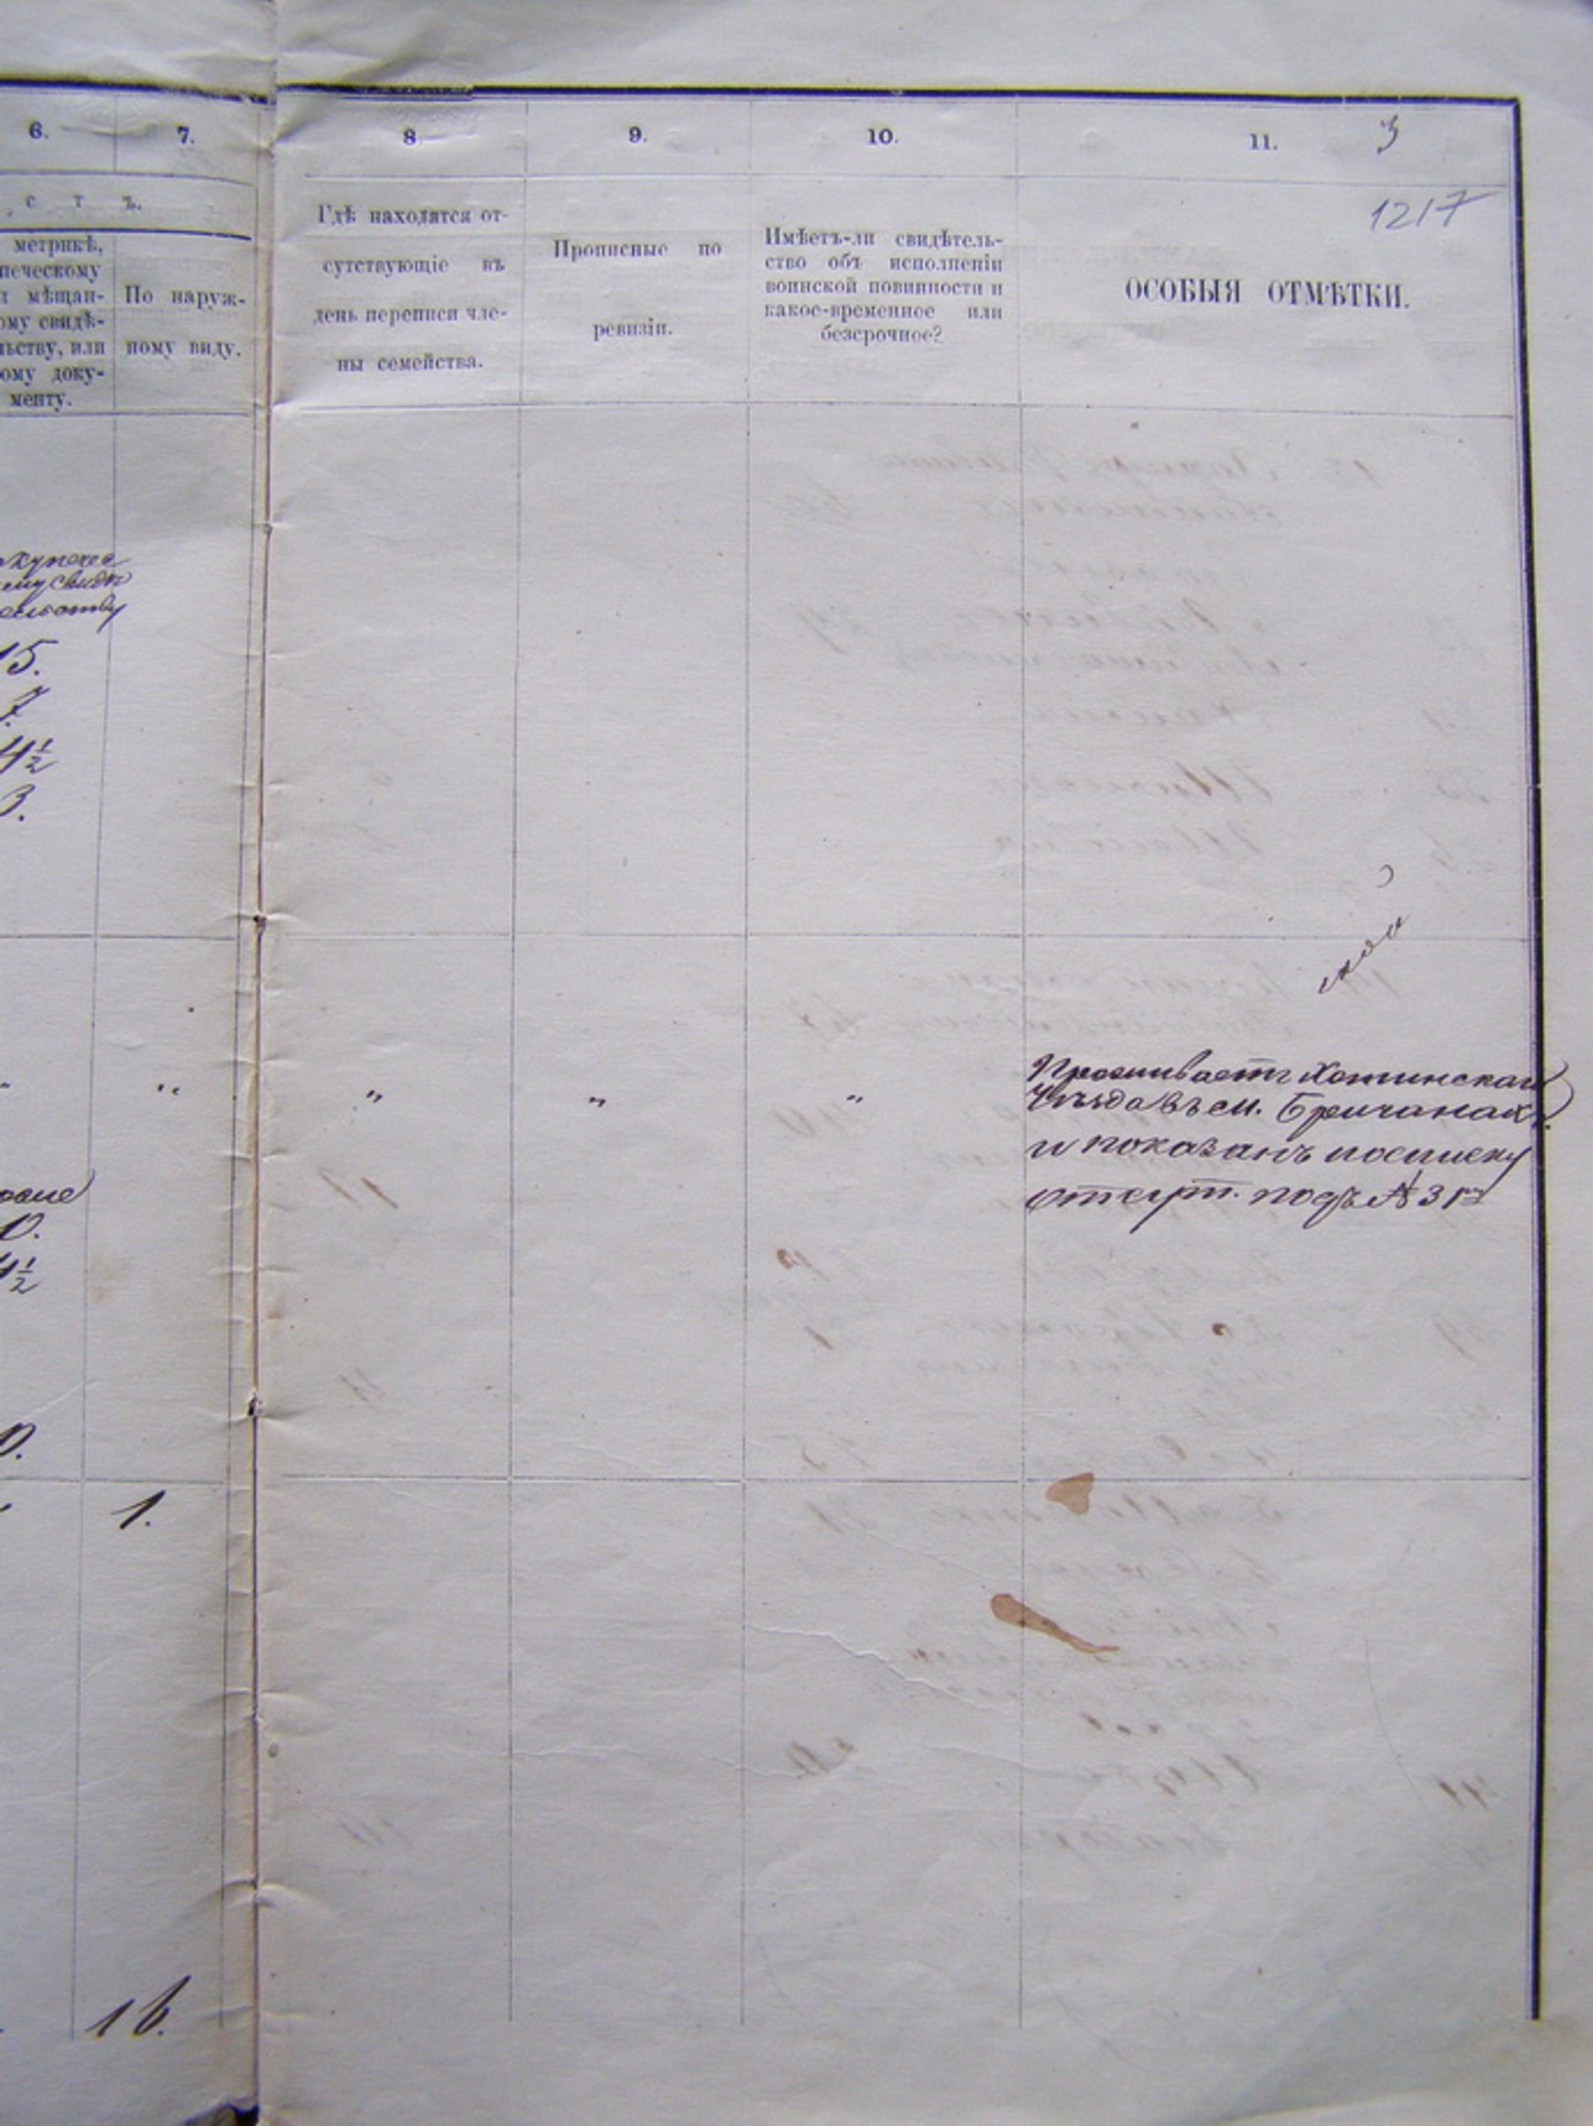 6.
7.
8
9.
10.
11.
3
1217
с т ъ.
метрикѣ,
печескому
мѣщан-
ому свидѣ-
льству, или
ому доку-
менту.
По наруж-
ному виду.
Гдѣ находятся от-
сутствующіе въ
день переписи чле-
ны семейства.
Прописные по
ревизіи.
Имѣетъ-ли свидѣтель-
ство объ исполненіи
воинской повинности и
какое-временное или
безсрочное?
ОСОБЫЯ ОТМѢТКИ.
купечес
ему свидѣ
тельству
15.
7.
4½
3.
ской
" " " "
Проживаетъ Хотинскаго
Уѣзда въ м. Бричанахъ
и показанъ посписку
отсут. подъ № 31
0.
4½
0.
1.
16.